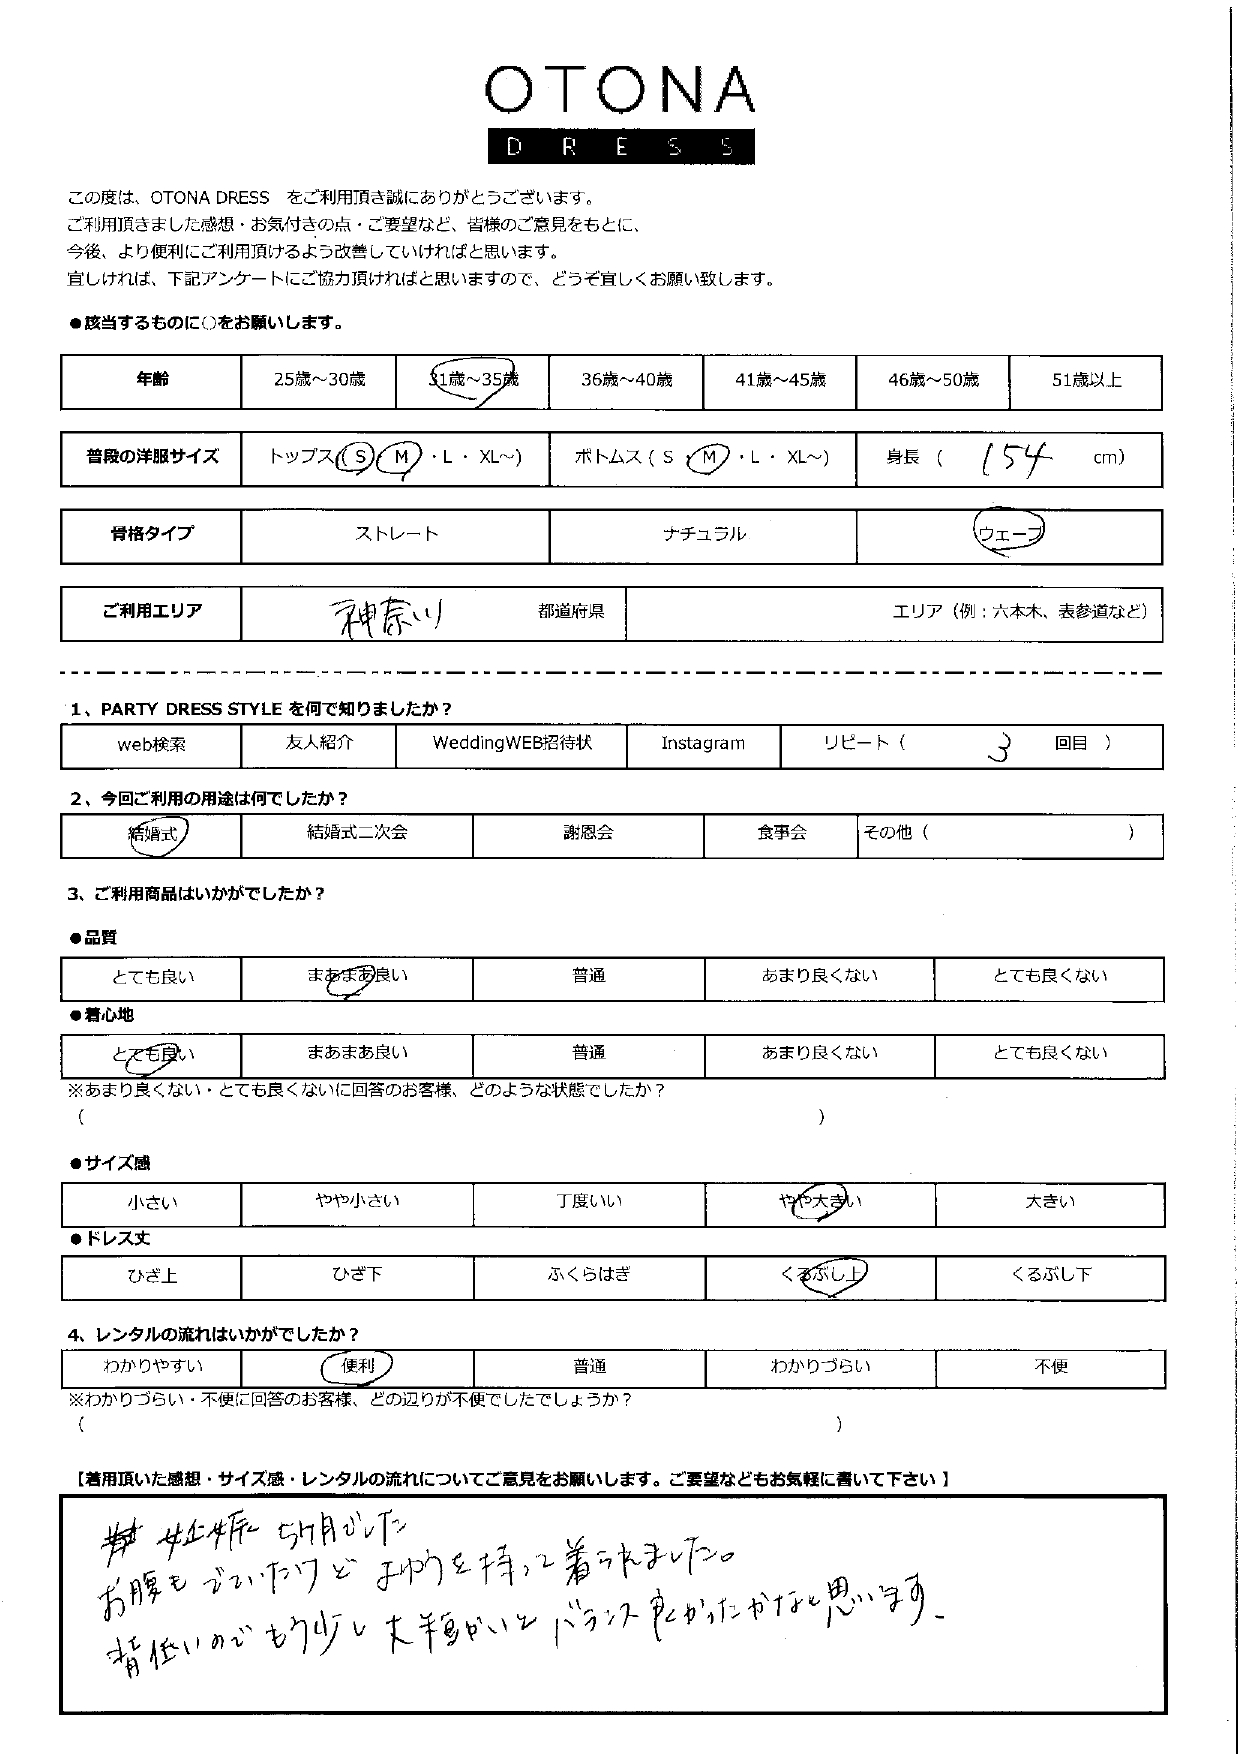 OTONA
DRESS
この度は、OTONA DRESS をご利用頂き誠にありがとうございます。
ご利用頂きました感想・お気付きの点・ご要望など、皆様のご意見をもとに、
今後、より便利にご利用頂けるよう改善していければと思います。
宜しければ、下記アンケートにご協力頂ければと思いますので、どうぞ宜しくお願い致します。
●該当するものに○をお願いします。
年齢 25歳～30歳 31歳～35歳 36歳～40歳 41歳～45歳 46歳～50歳 51歳以上
普段の洋服サイズ トップス(S・M・L・XL～) ボトムス(S・M・L・XL～) 身長 ( 154 cm)
骨格タイプ ストレート ナチュラル ウェーブ
ご利用エリア 神奈川 都道府県 エリア（例：六本木、表参道など）
1、PARTY DRESS STYLE を何で知りましたか？
web検索 友人紹介 WeddingWEB招待状 Instagram リピート（ 3 回目 ）
2、今回ご利用の用途は何でしたか？
結婚式 結婚式二次会 謝恩会 食事会 その他（ ）
3、ご利用商品はいかがでしたか？
●品質
とても良い まあまあ良い 普通 あまり良くない とても良くない
●着心地
とても良い まあまあ良い 普通 あまり良くない とても良くない
※あまり良くない・とても良くないに回答のお客様、どのような状態でしたか？
（ ）
●サイズ感
小さい やや小さい 丁度いい やや大きい 大きい
●ドレス丈
ひざ上 ひざ下 ふくらはぎ くるぶし上 くるぶし下
4、レンタルの流れはいかがでしたか？
わかりやすい 便利 普通 わかりづらい 不便
※わかりづらい・不便に回答のお客様、どの辺りが不便でしたでしょうか？
（ ）
【着用頂いた感想・サイズ感・レンタルの流れについてご意見をお願いします。ご要望などもお気軽に書いて下さい 】
妊娠 5ヶ月でした
お腹もでていたけど よゆうを持って着られました。
背低いのでもう少し丈短かいと バランス良かったかなと思います。